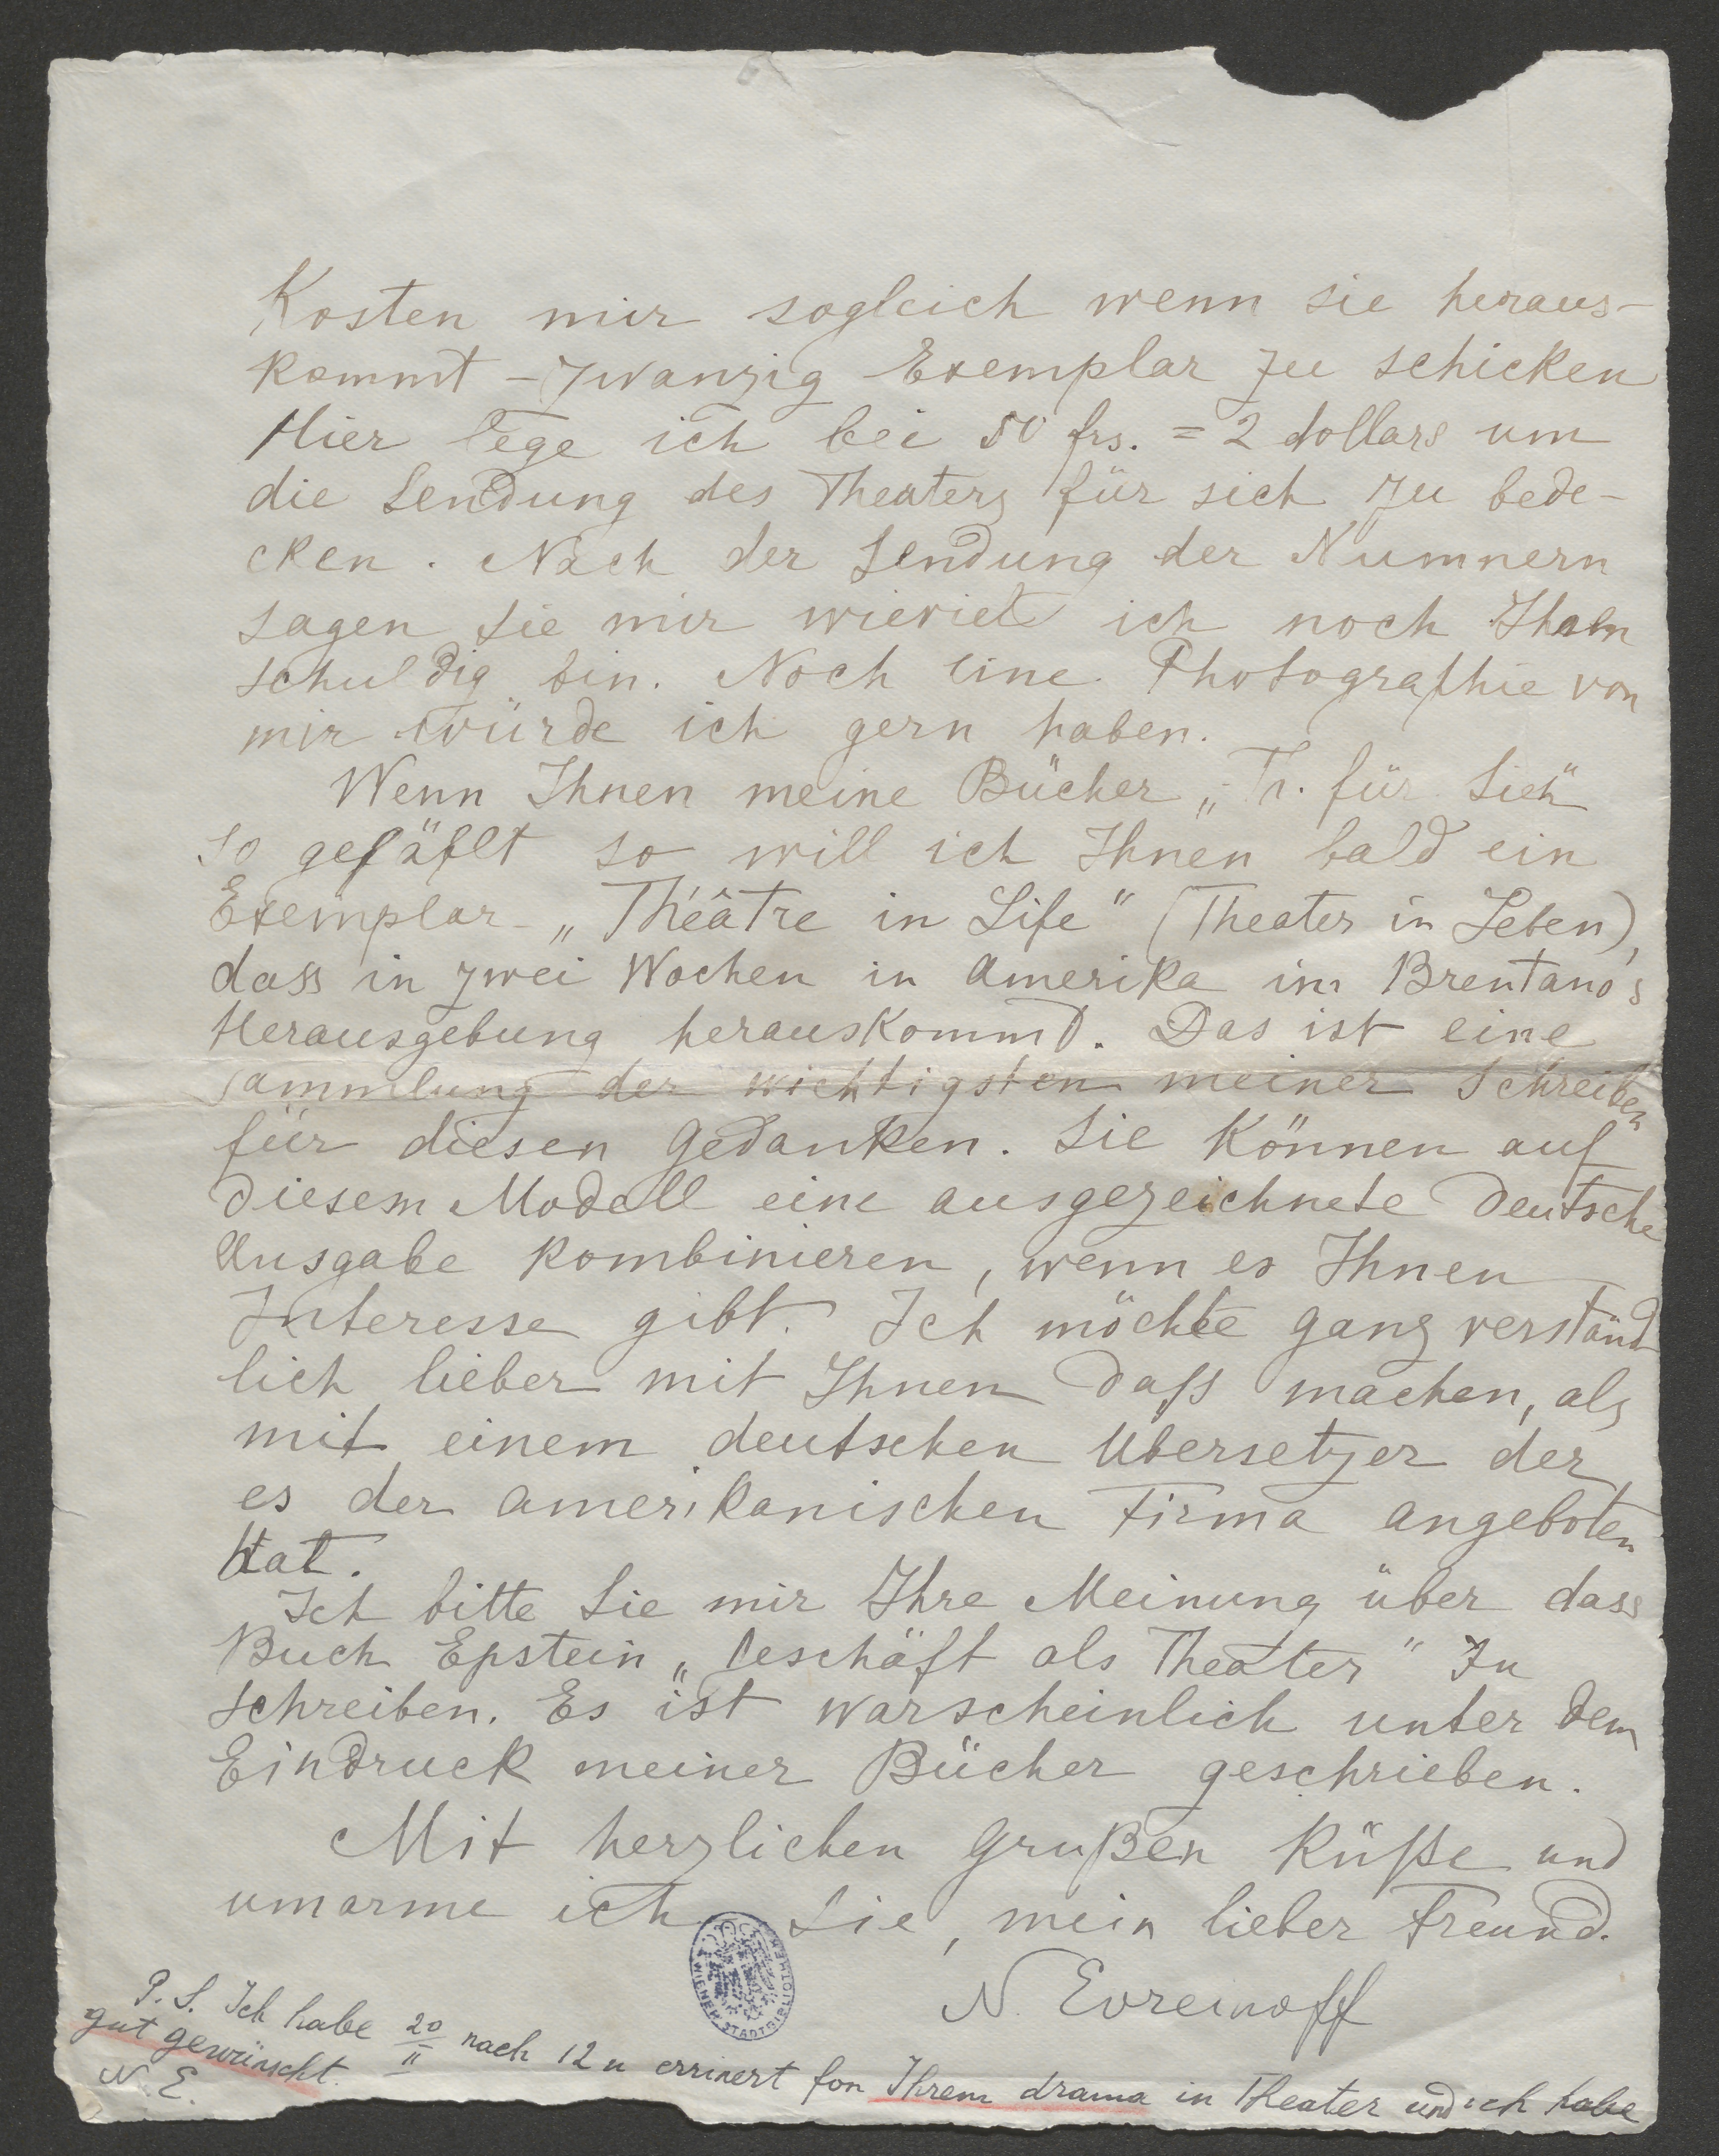 Kosten mir sogleich wenn sie heraus-
kommt - zwanzig Exemplar zu schicken
Hier lege ich bei 50 frs. = 2 dollars um
die Sendung des Theaters für sich zu bede-
cken. Nach der Sendung der Numnern
sagen Sie mir wieviel ich noch Ihnen
schuldig bin. Noch eine Photographie von
mir würde ich gern haben.
Wenn Ihnen meine Bücher „Th. für Sich"
so gefäflt so will ich Ihnen bald ein
Exemplar - „Théâtre in Life" (Theater in Leben),
dass in zwei Wochen in Amerika im Brentano's
Herausgebung herauskommt. Das ist eine
sammlung der wichtigsten meiner Schreiben
für diesen Gedanken. Sie können auf
diesem Modell eine ausgezeichnete deutsche
Ausgabe kombinieren, wenn es Ihnen
Interesse gibt. Ich möchte ganz verständ-
lich lieber mit Ihnen daß machen, als
mit einem deutschen Übersetzer der
es der amerikanischen Firma angeboten
hat.
Ich bitte Sie mir Ihre Meinung über dass
Buch Epstein „Geschäft als Theater" zu
schreiben. Es ist warscheinlich unter dem
Eindruck meiner Bücher geschrieben.
Mit herzlichen Grußen Küße und
umarme ich Sie, mein lieber Freund.
N. Evreinoff
WIENER STADTBIBLIOTHEK
P. S. Ich habe 20/II nach 12 u errinert fon Ihrem drama in Theater und ich habe
gut gewünscht.
N. E.